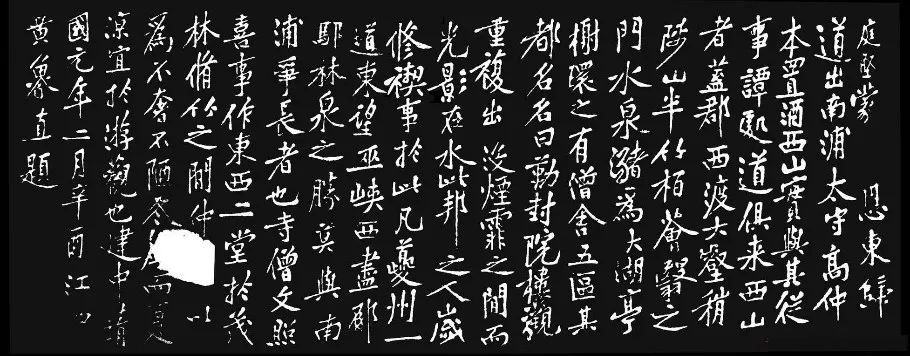 庭堅蒙 恩東歸
道出南浦太守高仲
本置酒西山實與其從
事譚處道俱来西山
者蓋郡西渡大壑稍
陟山半竹柏薈翳之
門水泉瀦為大湖亭
榭環之有僧舍五區其
都名名曰勒封院樓觀
重複出没煙霏之間而
光影在水此邦之人歲
修禊事於此凡夔州一
道東望巫峽西盡郁
鄢林泉之勝莫與南
浦爭長者也寺僧文照
喜事作東西二堂於茂
林脩竹之間仲以
為不奢不陋冬而夏
凉宜於游觀也建中靖
國元年二月辛酉江
黄魯直題